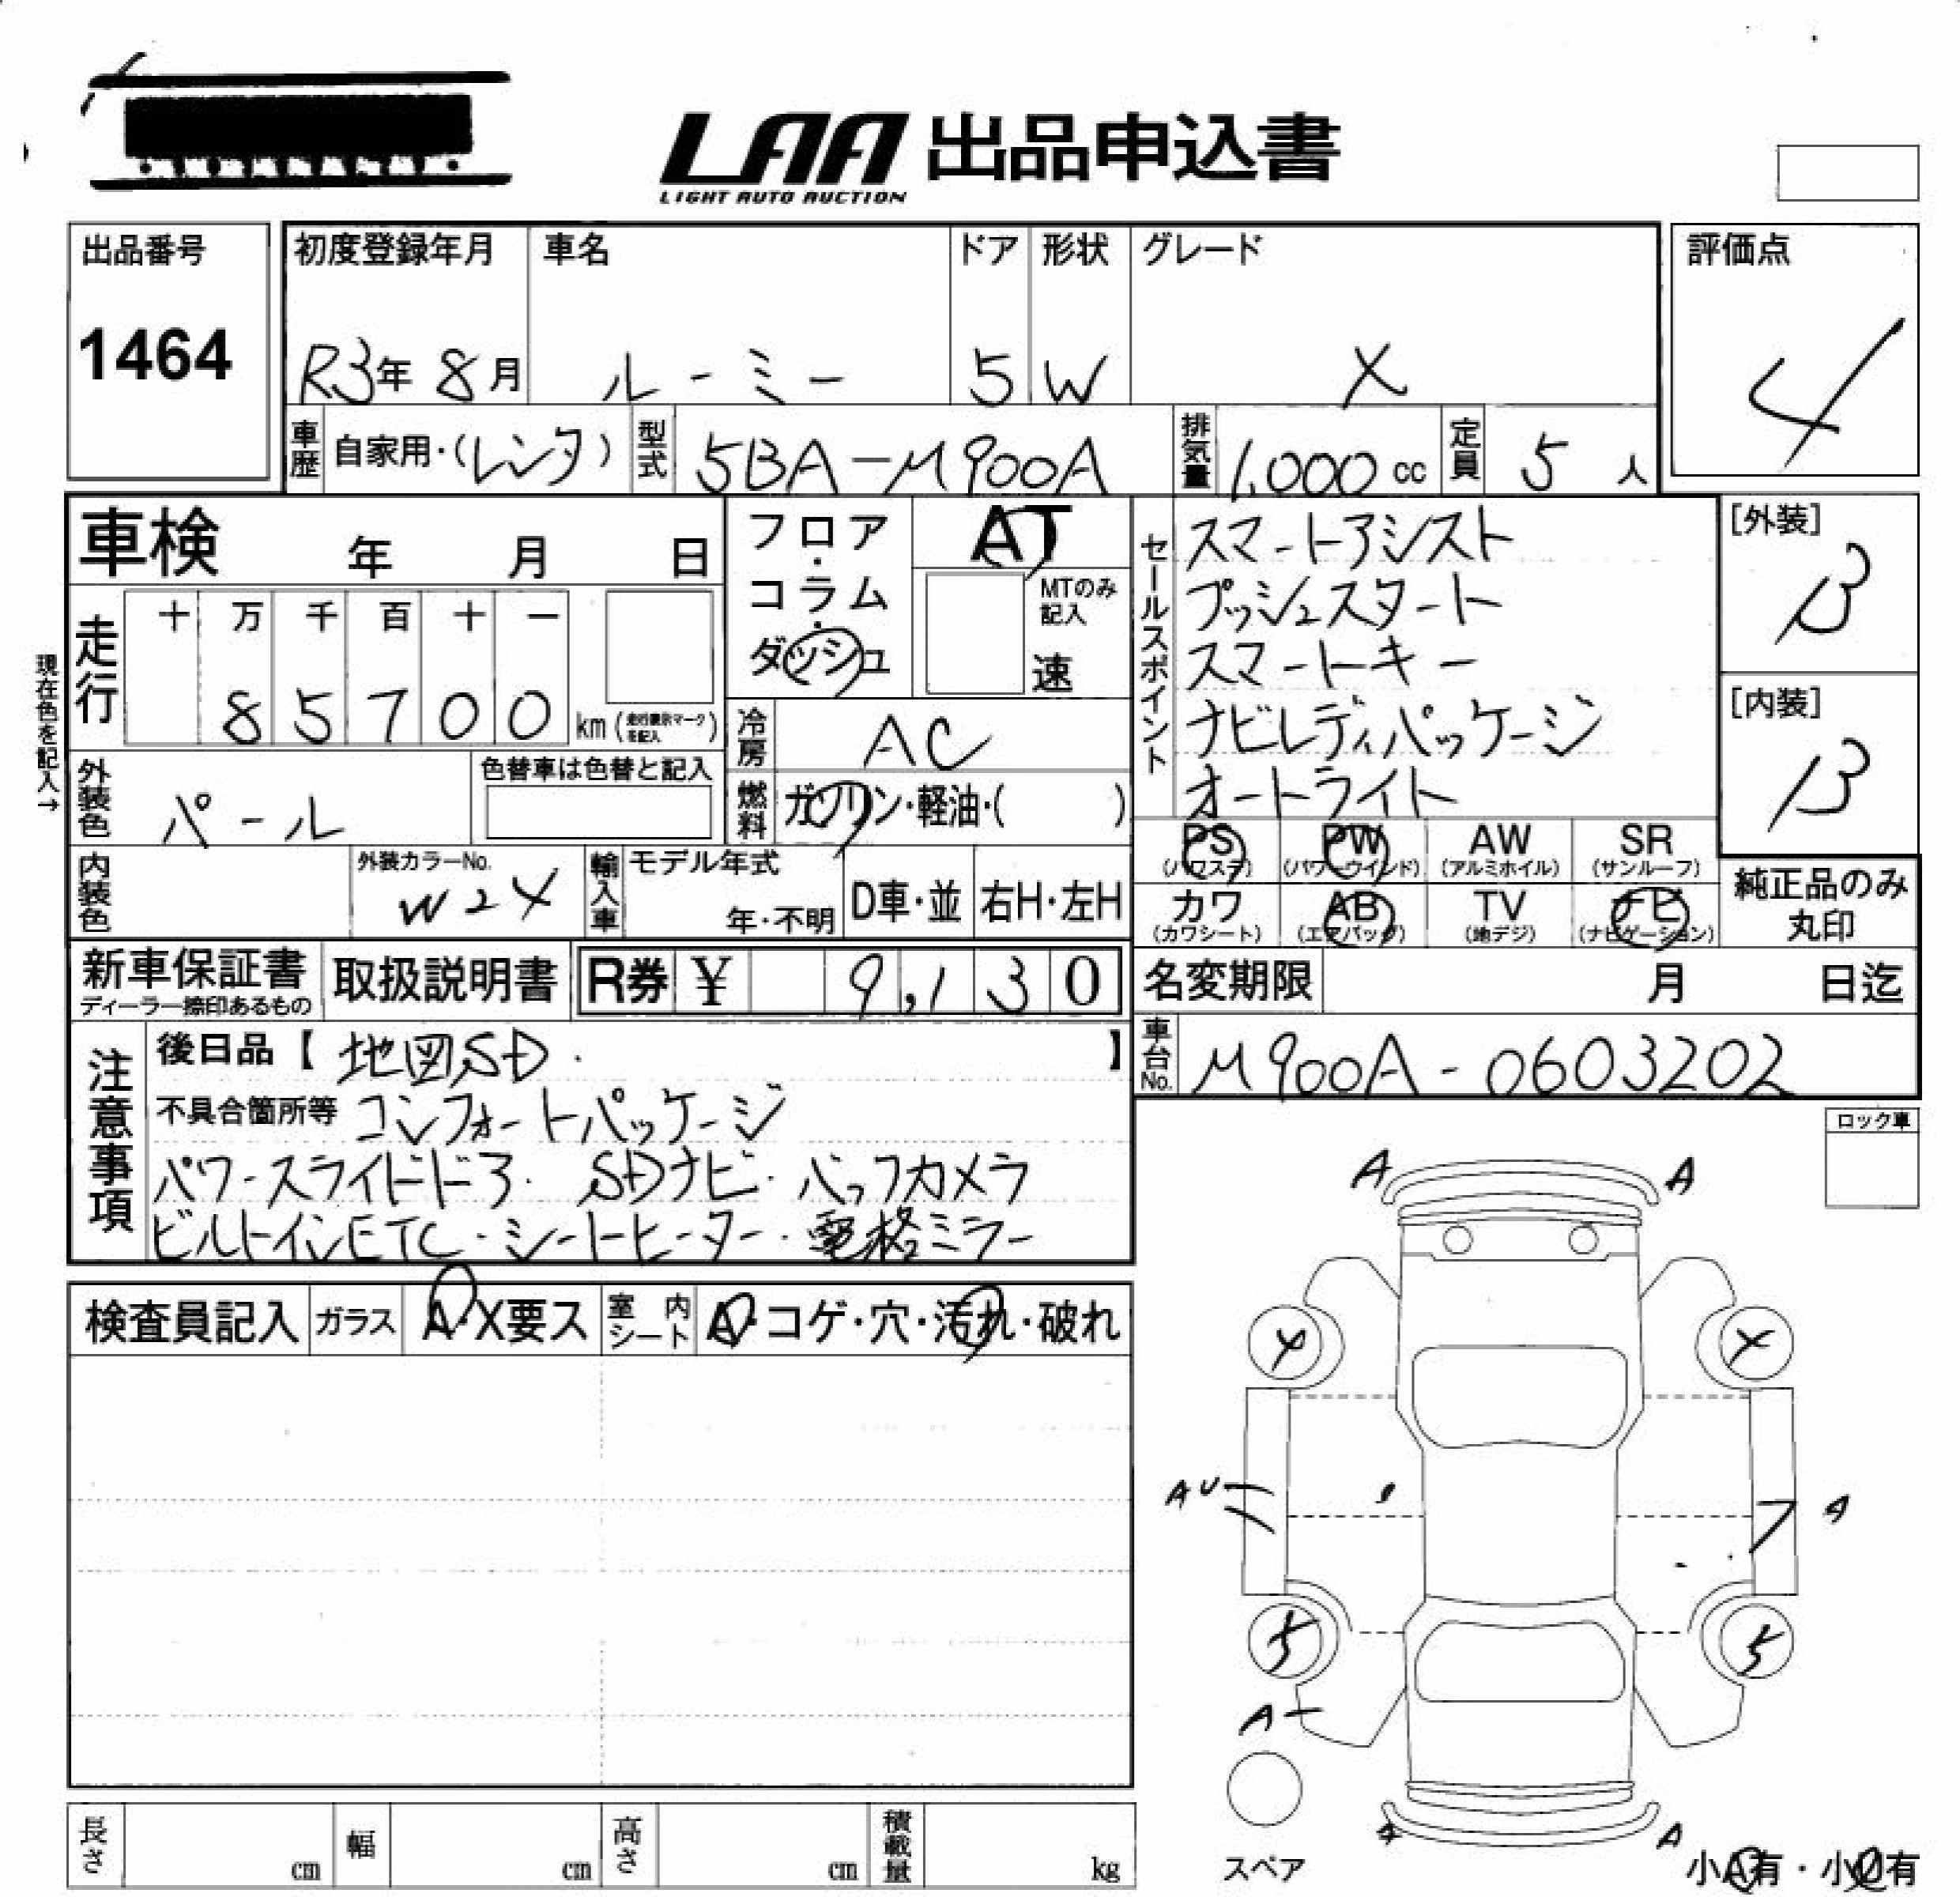 LAA 出品申込書
LIGHT AUTO AUCTION
出品番号
1464
初度登録年月
R3年 8月
車名
ルーミー
ドア
5
形状
W
グレード
X
評価点
4
車歴
自家用・(レンタ)
型式
5BA-M900A
排気量
1,000 cc
定員
5 人
車検 年 月 日
フロア・コラム・ダッシュ
AT
MTのみ記入
速
セールスポイント
スマートアシスト
プッシュスタート
スマートキー
ナビレディパッケージ
オートライト
[外装]
B
[内装]
B
現在色を記入→
走行
十 万 千 百 十 一
8 5 7 0 0
km (走行表示マークを記入)
冷房
AC
外装色
パール
色替車は色替と記入
燃料
ガソリン・軽油・( )
PS (パワステ)
PW (パワーウインド)
AW (アルミホイル)
SR (サンルーフ)
カワ (カワシート)
AB (エアバッグ)
TV (地デジ)
ナビ (ナビゲーション)
純正品のみ丸印
内装色
外装カラーNo.
W24
輸入車
モデル年式
年・不明
D車・並
右H・左H
新車保証書
ディーラー捺印あるもの
取扱説明書
R券 ¥ 9,130
名変期限 月 日迄
車台No.
M900A-0603202
注意事項
後日品【 地図SD. 】
不具合箇所等 コンフォートパッケージ
パワースライドドア. SDナビ・バックカメラ
ビルトインETC・シートヒーター・電格ミラー
ロック車
検査員記入
ガラス
A・X要ス
室内シート
A・コゲ・穴・汚れ・破れ
A
A
4
4
AU
A
5
5
A
A
A
スペア
小A有・小U有
長さ cm
幅 cm
高さ cm
積載量 kg